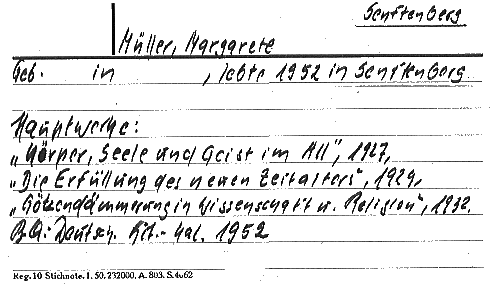 Senftenberg
Müller, Margarete
Geb. in , lebte 1952 in Senftenberg
Hauptwerke:
„Körper, Seele und Geist im All", 1927,
„Die Erfüllung des neuen Zeitalters", 1929,
„Götzendämmerung in Wissenschaft u. Religion", 1932.
B.Q.: Deutsch. Lit.-Kal. 1952
Reg. 10 Stichnote. I. 50. 232000. A. 803. S. 4062